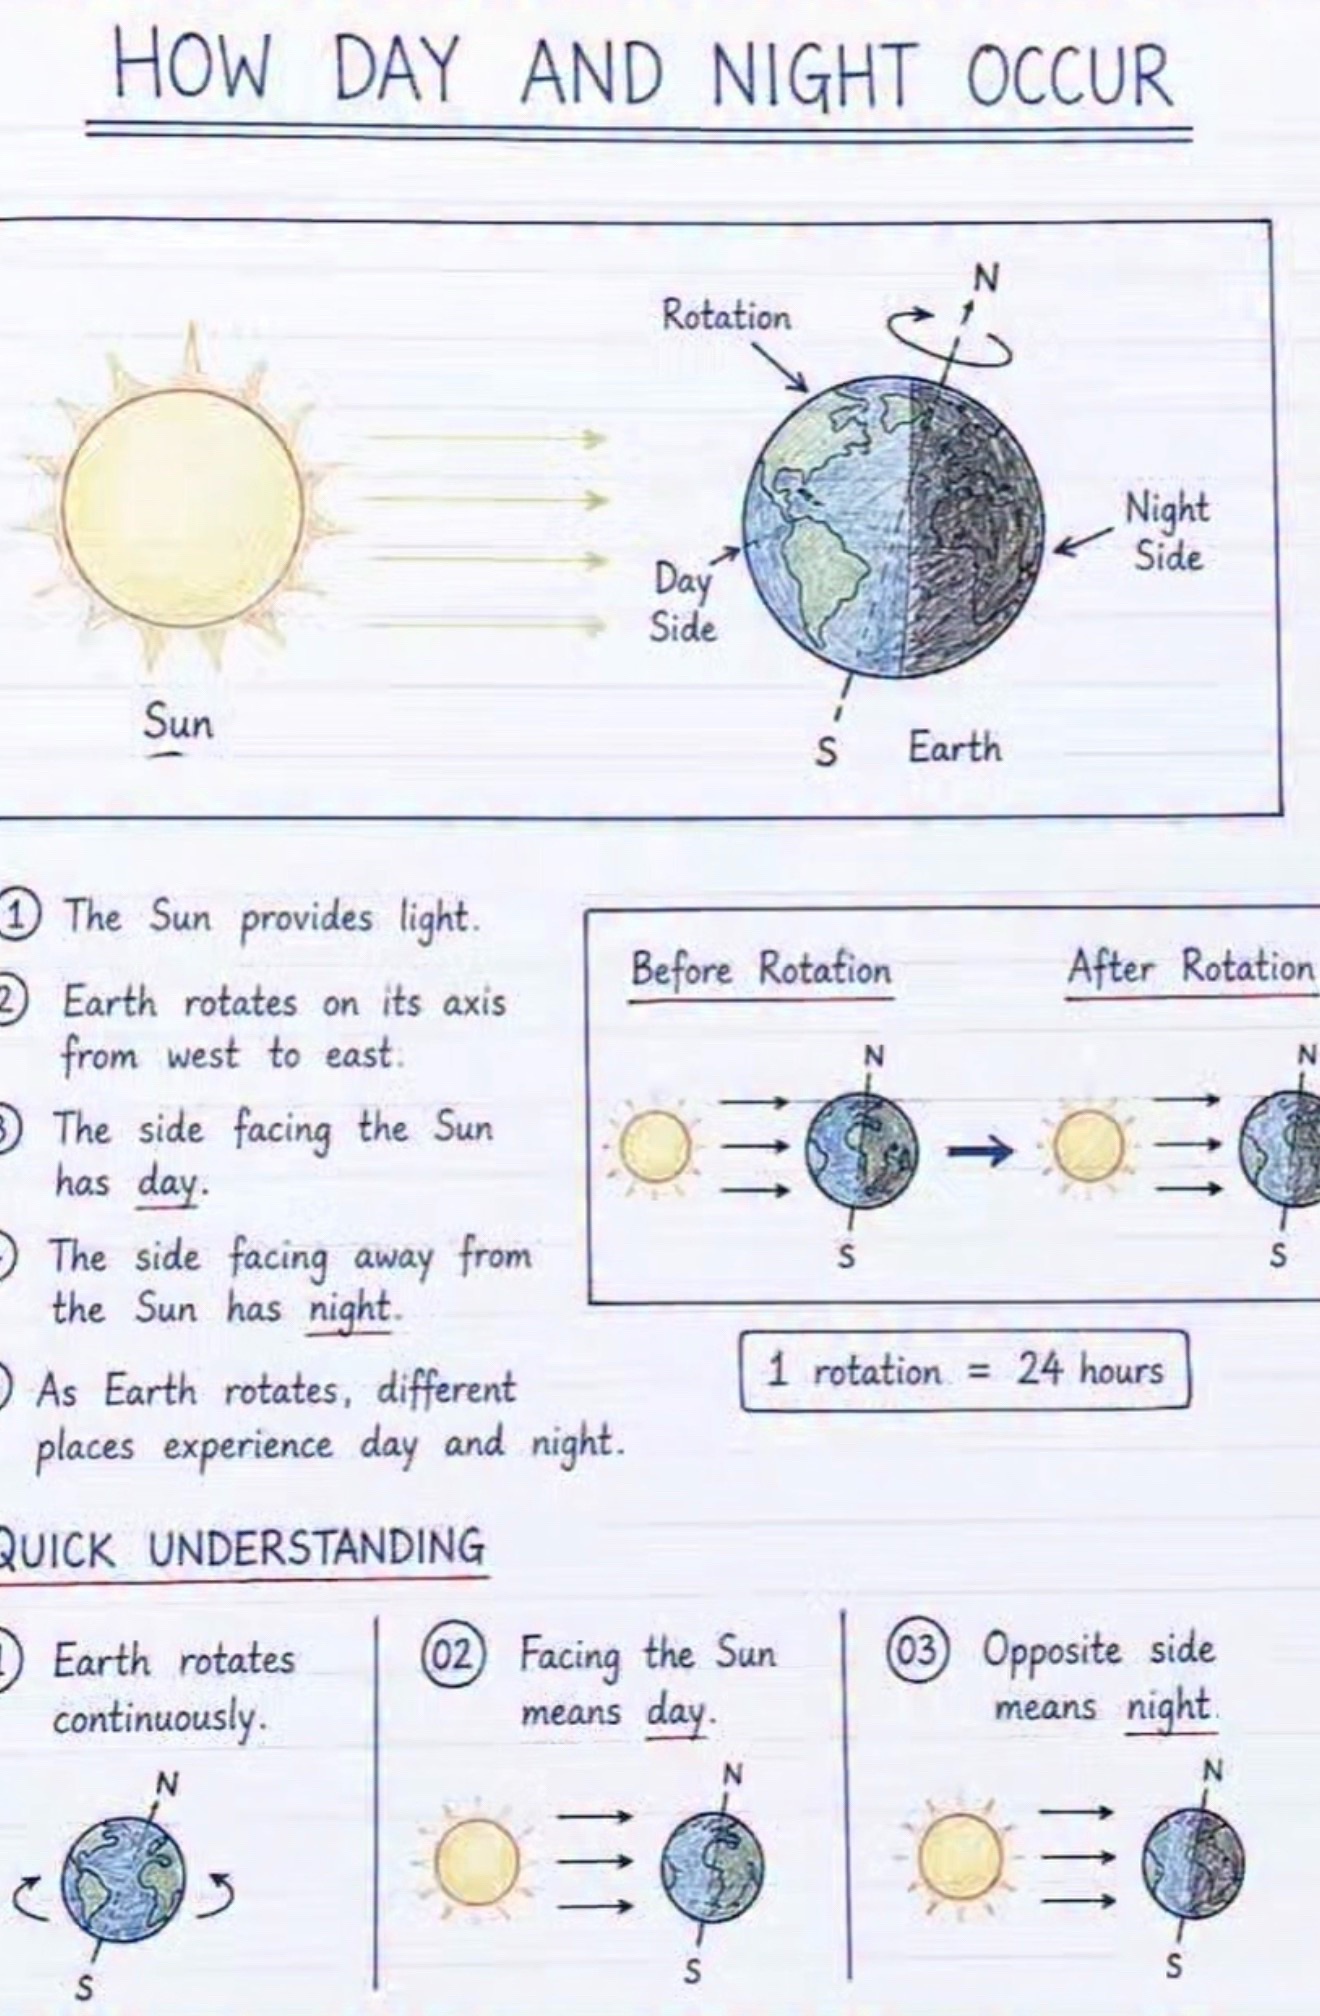 HOW DAY AND NIGHT OCCUR
N
Rotation
Night
Side
Day
Side
Sun
S
Earth
1 The Sun provides light.
2 Earth rotates on its axis
from west to east.
3 The side facing the Sun
has day.
The side facing away from
the Sun has night.
As Earth rotates, different
places experience day and night.
Before Rotation
After Rotation
N
N
S
S
1 rotation = 24 hours
QUICK UNDERSTANDING
1 Earth rotates
continuously.
N
S
02 Facing the Sun
means day.
N
S
03 Opposite side
means night.
N
S